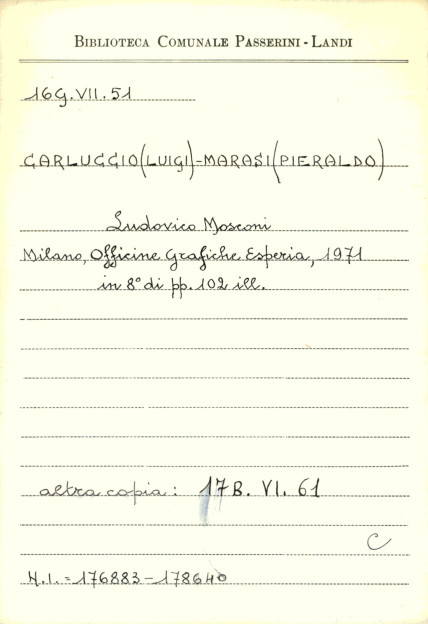 BIBLIOTECA COMUNALE PASSERINI - LANDI
16G.VII.51
CARLUCCIO (LUIGI) - MARASI (PIERALDO)
Ludovico Mosconi
Milano, Officine Grafiche Esperia, 1971
in 8° di pp. 102 ill.
altra copia: 17B. VI. 61
C
N.I. = 176883 - 178640